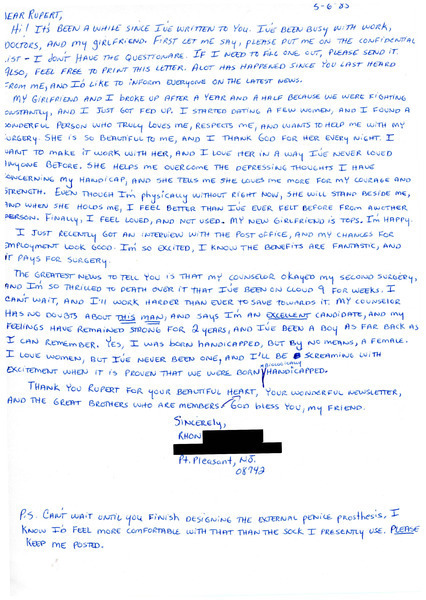 5-6-85
DEAR RUPERT,
HI! IT'S BEEN A WHILE SINCE I'VE WRITTEN TO YOU. I'VE BEEN BUSY WITH WORK,
DOCTORS, AND MY GIRLFRIEND. FIRST LET ME SAY, PLEASE PUT ME ON THE CONFIDENTIAL
LIST - I DON'T HAVE THE QUESTIONARE. IF I NEED TO FILL ONE OUT, PLEASE SEND IT.
ALSO, FEEL FREE TO PRINT THIS LETTER. ALOT HAS HAPPENED SINCE YOU LAST HEARD
FROM ME, AND I'D LIKE TO INFORM EVERYONE ON THE LATEST NEWS.
MY GIRLFRIEND AND I BROKE UP AFTER A YEAR AND A HALF BECAUSE WE WERE FIGHTING
CONSTANTLY, AND I JUST GOT FED UP. I STARTED DATING A FEW WOMEN, AND I FOUND A
WONDERFUL PERSON WHO TRULY LOVES ME, RESPECTS ME, AND WANTS TO HELP ME WITH MY
SURGERY. SHE IS SO BEAUTIFUL TO ME, AND I THANK GOD FOR HER EVERY NIGHT. I
WANT TO MAKE IT WORK WITH HER, AND I LOVE HER IN A WAY I'VE NEVER LOVED
ANYONE BEFORE. SHE HELPS ME OVERCOME THE DEPRESSING THOUGHTS I HAVE
CONCERNING MY HANDICAP, AND SHE TELLS ME SHE LOVES ME MORE FOR MY COURAGE AND
STRENGTH. EVEN THOUGH I'M PHYSICALLY WITHOUT RIGHT NOW, SHE WILL STAND BESIDE ME,
AND WHEN SHE HOLDS ME, I FEEL BETTER THAN I'VE EVER FELT BEFORE FROM ANOTHER
PERSON. FINALLY, I FEEL LOVED, AND NOT USED. MY NEW GIRLFRIEND IS TOPS. I'M HAPPY.
I JUST RECENTLY GOT AN INTERVIEW WITH THE POST OFFICE, AND MY CHANCES FOR
EMPLOYMENT LOOK GOOD. I'M SO EXCITED, I KNOW THE BENEFITS ARE FANTASTIC, AND
IT PAYS FOR SURGERY.
THE GREATEST NEWS TO TELL YOU IS THAT MY COUNSELOR OKAYED MY SECOND SURGERY,
AND I'M SO THRILLED TO DEATH OVER IT THAT I'VE BEEN ON CLOUD 9 FOR WEEKS. I
CAN'T WAIT, AND I'LL WORK HARDER THAN EVER TO SAVE TOWARDS IT. MY COUNSELOR
HAS NO DOUBTS ABOUT THIS MAN, AND SAYS I'M AN EXCELLENT CANDIDATE, AND MY
FEELINGS HAVE REMAINED STRONG FOR 2 YEARS, AND I'VE BEEN A BOY AS FAR BACK AS
I CAN REMEMBER. YES, I WAS BORN HANDICAPPED, BUT BY NO MEANS, A FEMALE.
I LOVE WOMEN, BUT I'VE NEVER BEEN ONE, AND I'LL BE SCREAMING WITH
EXCITEMENT WHEN IT IS PROVEN THAT WE WERE BORN BIOLOGICALLY HANDICAPPED.
THANK YOU RUPERT FOR YOUR BEAUTIFUL HEART, YOUR WONDERFUL NEWSLETTER,
AND THE GREAT BROTHERS WHO ARE MEMBERS. GOD BLESS YOU, MY FRIEND.
SINCERELY,
RHON
Pt. Pleasant, N.J.
08742
P.S. CAN'T WAIT UNTIL YOU FINISH DESIGNING THE EXTERNAL PENILE PROSTHESIS, I
KNOW I'D FEEL MORE COMFORTABLE WITH THAT THAN THE SOCK I PRESENTLY USE. PLEASE
KEEP ME POSTED.